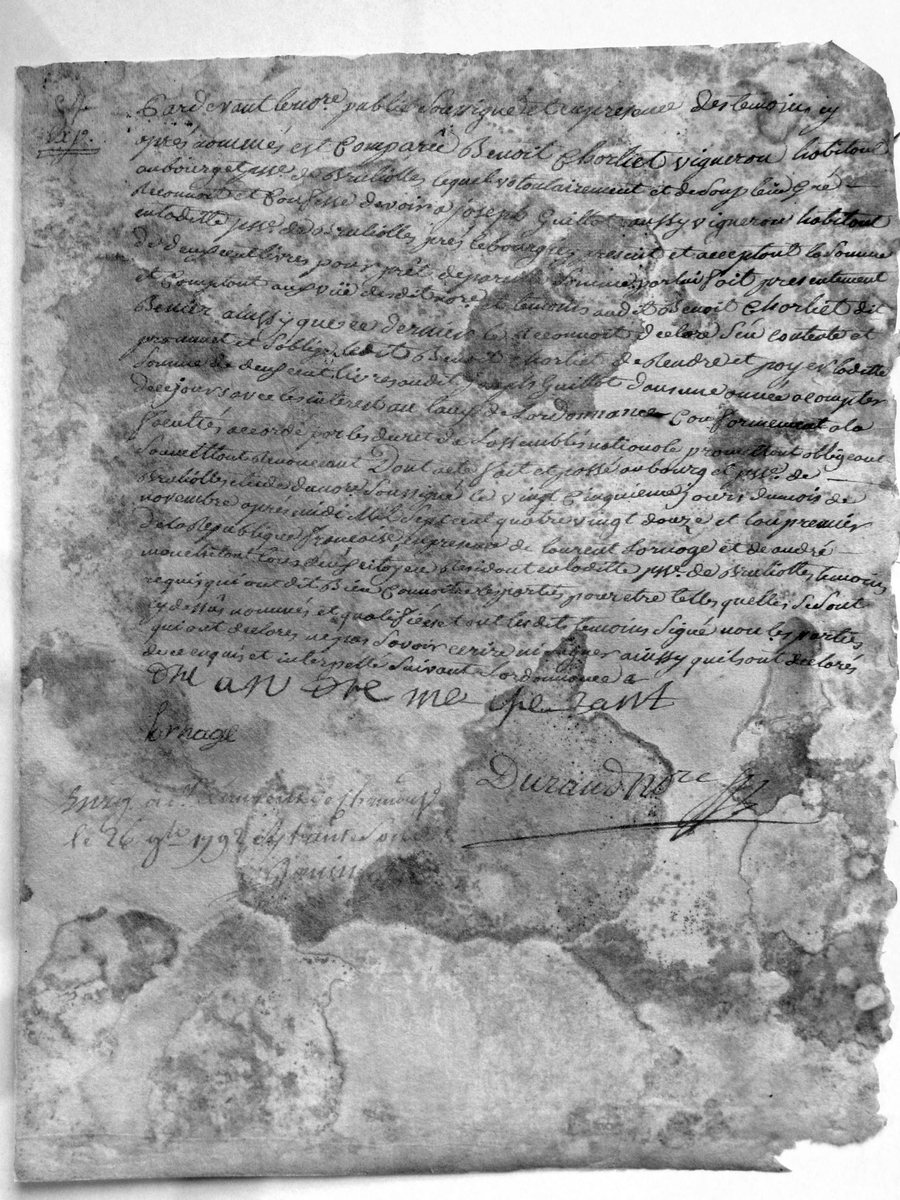 Exp.
Pardevant le nore public soussigné et en presence des temoins cy
après nommés est Comparû Benoit Chorliet vigneron habitant
au bourg et psse de Brulliolles lequel volontairement et de son plein Gré
Reconnoit et Confesse devoir a joseph Guillot aussy vigneron habitant
en laditte psse de Brulliolles près le bourg icy present et acceptant la Somme
de deux cent livres pour prêt de pareille Somme par lui fait presentement
et Comptant aux vüe desdit nore et temoins audit Benoit Chorliet dit
ainssy que ce dernier le reconnoit declare s'en contente et
promet et s'oblige ledit Benoit Chorliet de Rendre et payer laditte
Somme de deux cent livres audit joseph Guillot dans une année a compter
de ce jour avec les interest au taux de Lordonnance Conformement a la
facultés accordé par les decret de Lassemblés nationale promettant obligeant
Soumettant Renoncant Dont acte fait et passé au bourg et psse de
Brulliolles etude du nore Soussigné le vingt Cinquieme jours du mois de
novembre apres midi Mil Sept cent quatre vingt douze et Lan premier
De la Republique francoise en presence de laurent Lornage et de andré
tous deux citoyen Residant en laditte psse de Brulliolles temoins
requis qui ont dit Bien Connoitre les parties pour etre telles quelles se sont
cy dessus nommés et qualifiées et ont lesdit temoins signé non les parties
qui ont declarés ne pas Savoir ecrire ni signer ainssy quils ont declarés
de ce enquis et interpellé Suivant Lordonnance
Lornage
Durand nore
le 26 9bre 1792